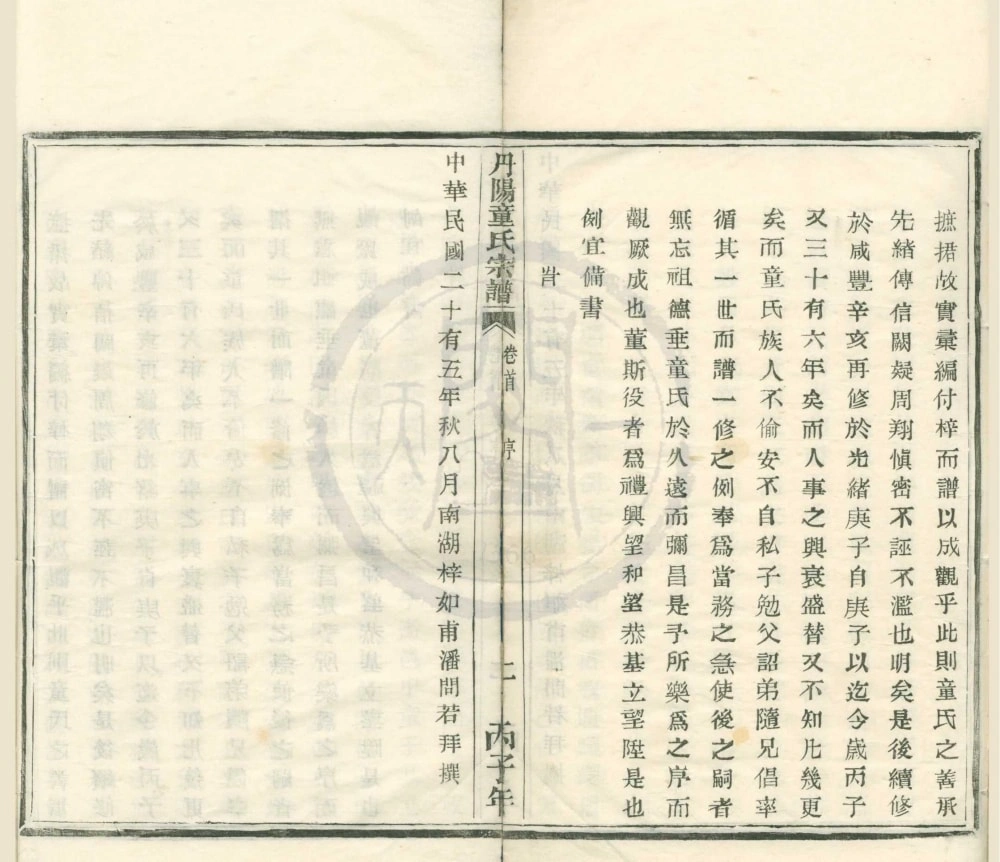 摭捃故實彙編付梓而譜以成觀乎此則童氏之善承
先緒傳信闕疑周翔慎密不誣不濫也明矣是後續修
於咸豐辛亥再修於光緒庚子自庚子以迄今歲丙子
又三十有六年矣而人事之興衰盛替又不知凡幾更
矣而童氏族人不偷安不自私子勉父詔弟隨兄倡率
循其一世而譜一修之例奉爲當務之急使後之嗣者
無忘祖德垂童氏於久遠而彌昌是予所樂爲之序而
觀厥成也董斯役者爲禮興望和望恭基立望陞是也
例宜備書
旹
丹陽童氏宗譜 卷首 序 二 丙子年
中華民國二十有五年秋八月南湖梓如甫潘問若拜撰